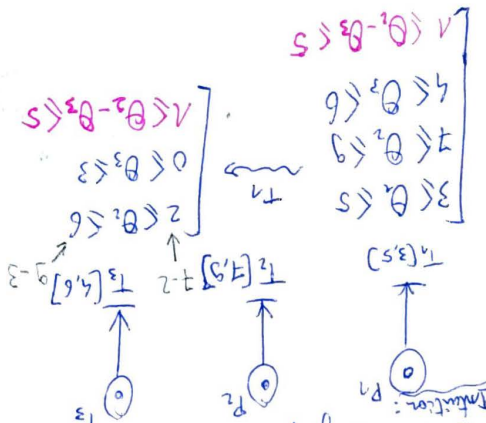 Intuition:
P1 P2
T1 [3,5] T2 [7,9] T3 [4,6]
7-2 9-3
3 ≤ θ1 ≤ 5
7 ≤ θ2 ≤ 9
4 ≤ θ3 ≤ 6
1 ≤ θ2-θ3 ≤ 5
T1
2 ≤ θ2 ≤ 6
0 ≤ θ3 ≤ 3
1 ≤ θ2-θ3 ≤ 5